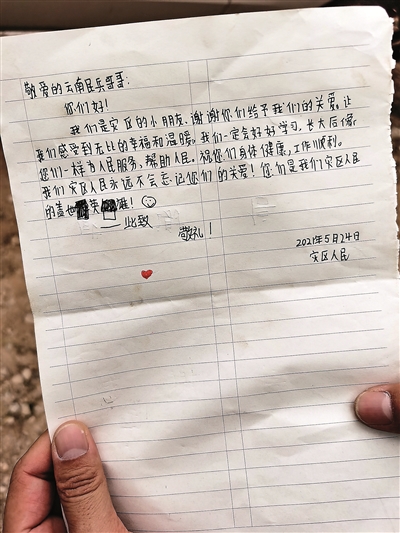 敬爱的云南民兵哥哥:
你们好!
我们是灾区的小朋友.谢谢你们给予我们的关爱,让
我们感受到无比的幸福和温暖。我们一定会好好学习,长大后像
您们一样为人民服务,帮助人民。祝您们身体健康,工作顺利。
我们灾区人民永远不会忘记您们的关爱!您们是我们灾区人民
的盖世英雄!
此致
敬礼!
2021年5月24日
灾区人民